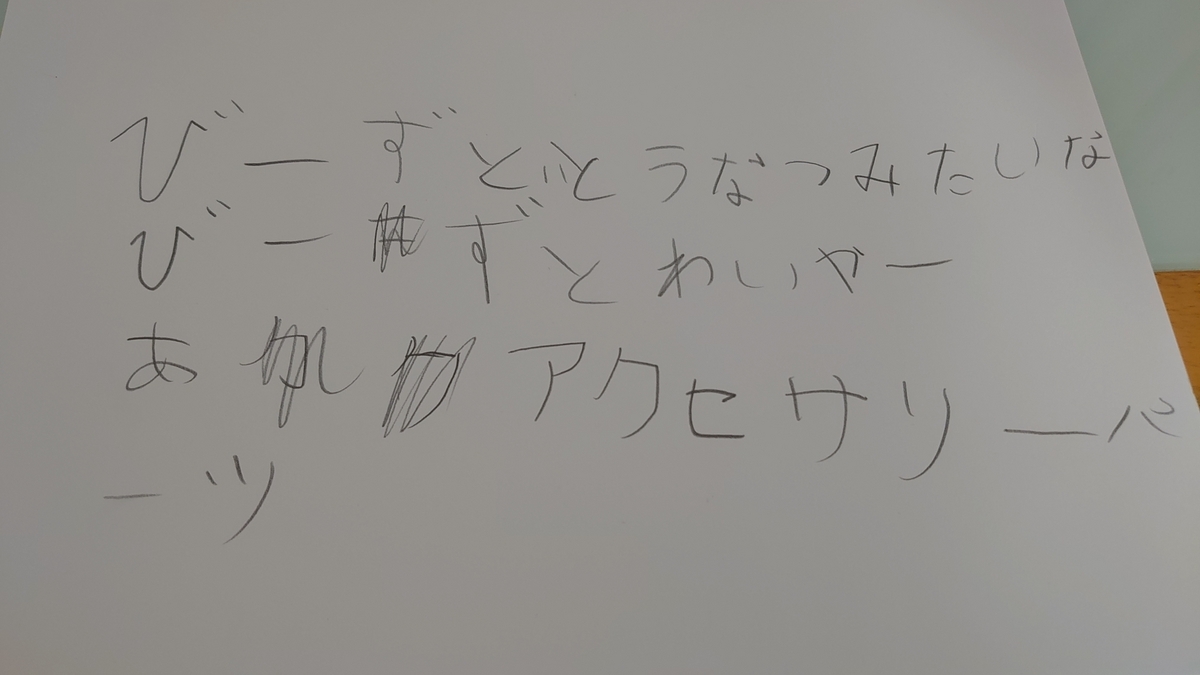 びーずどどうなつみたいな
びーずとわいやー
あ アクセサリーパ
ーツ